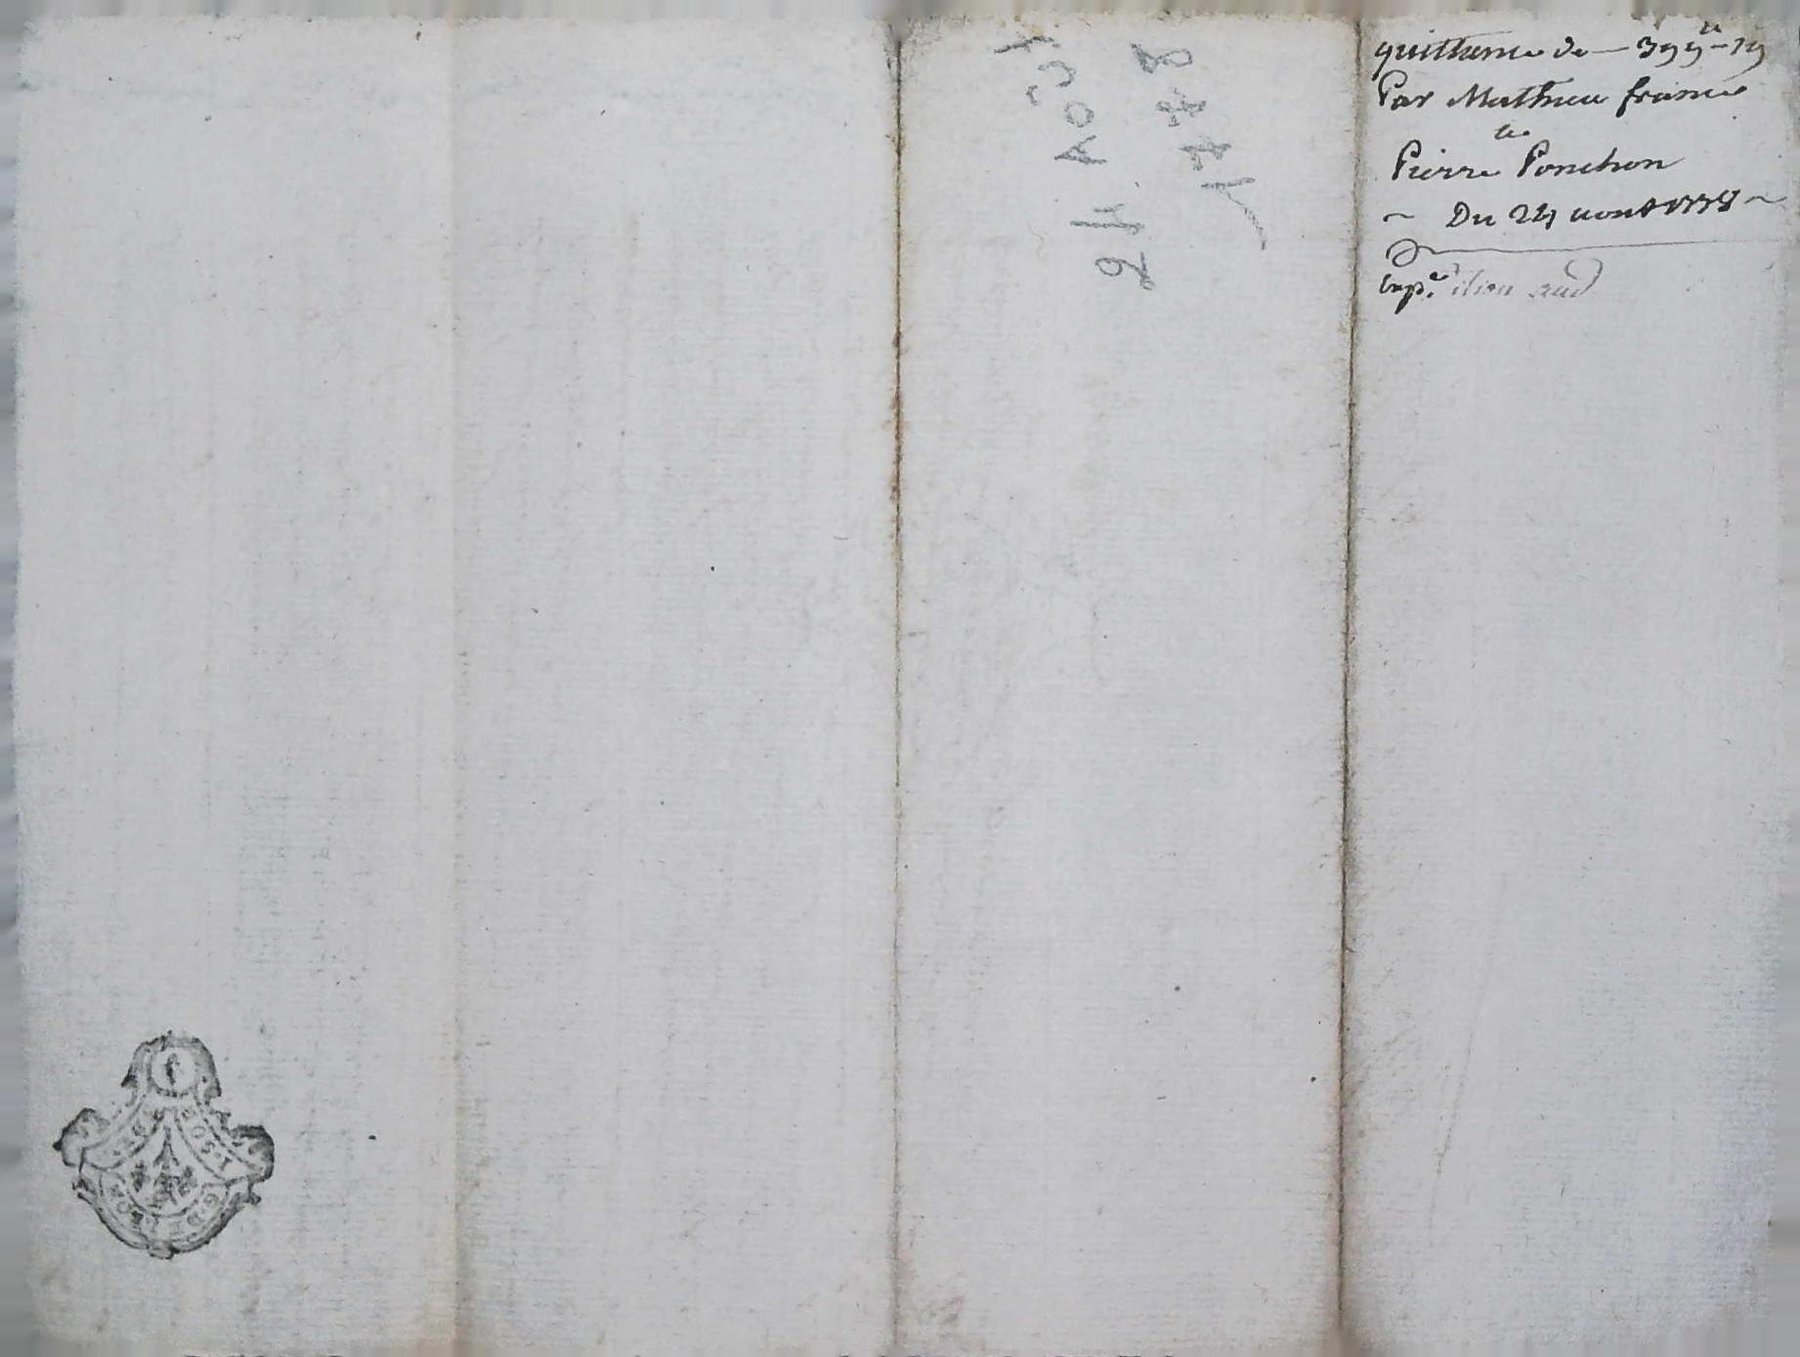 quittance de — 399ᵗᵗ - 19
Par Mathieu france
a
Pierre Ponchon
~ Du 24 aoust 1778 ~
Exp.ᵉ
24 AOÛT
1778